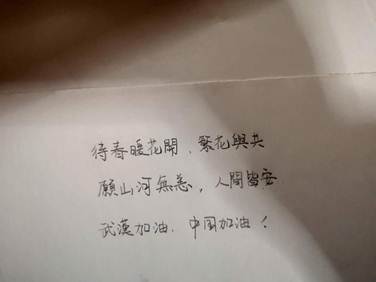 待春暖花開、繁花與共
願山河無恙，人間皆安
武漢加油，中国加油！